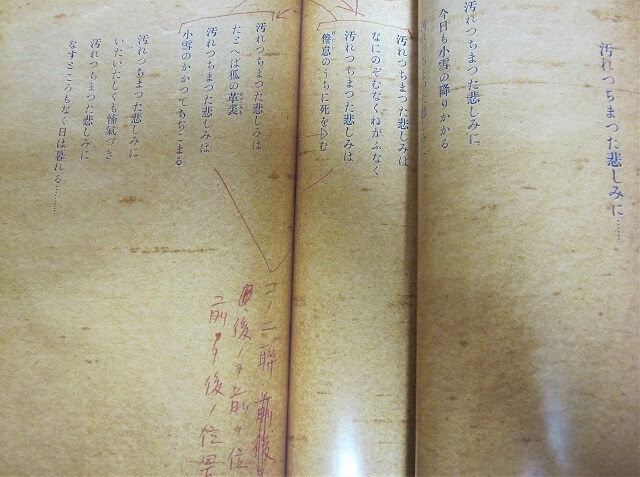 汚れつちまつた悲しみに……
汚れつちまつた悲しみに
今日も小雪の降りかかる
汚れつちまつた悲しみは
なにのぞむなくねがふなく
汚れつちまつた悲しみは
倦怠のうちに死を夢む
汚れつちまつた悲しみは
たとへば狐の革裘
汚れつちまつた悲しみは
小雪のかかつてちぢこまる
汚れつちまつた悲しみに
いたいたしくも怖氣づき
汚れつちまつた悲しみに
なすところもなく日は暮れる……
コノ二聯 前後
後ノヲ前ノ位
前ノヲ後ノ位置